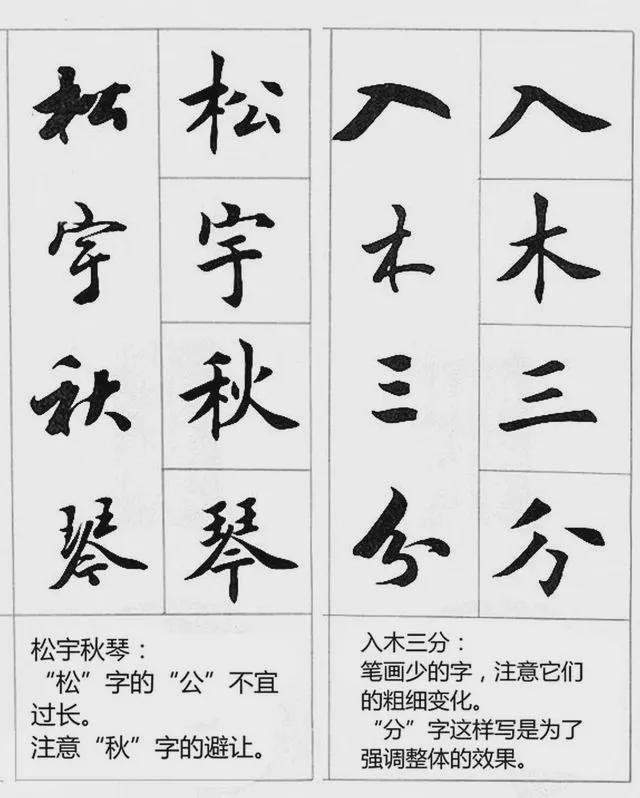 入木三分
入木三分
入木三分：
笔画少的字，注意它们
的粗细变化。
“分”字这样写是为了
强调整体的效果。
松宇秋琴
松宇秋琴
松宇秋琴：
“松”字的“公”不宜
过长。
注意“秋”字的避让。